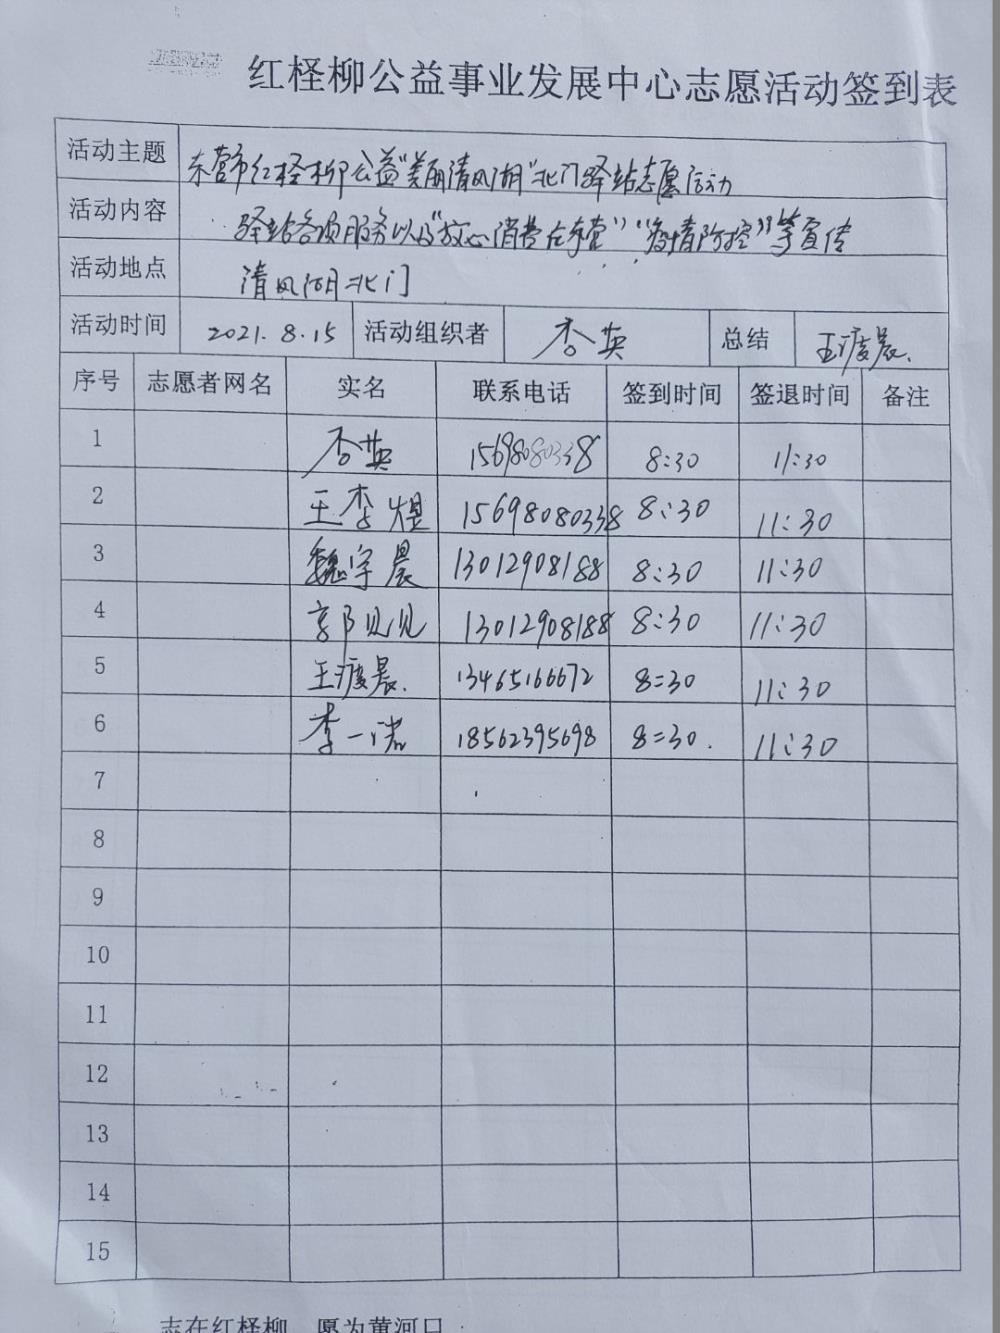 红柽柳公益事业发展中心志愿活动签到表
活动主题 东营市红柽柳公益"美丽清风湖"北门驿站志愿活动
活动内容 驿站各项服务以及"放心消费在东营""疫情防控"等宣传
活动地点 清风湖北门
活动时间 2021.8.15 活动组织者 杏英 总结 王渡晨.
序号 志愿者网名 实名 联系电话 签到时间 签退时间 备注
1 杏英 15698080338 8:30 11:30
2 王李煜 15698080338 8:30 11:30
3 魏宇晨 13012908188 8:30 11:30
4 郭见见 13012908188 8:30 11:30
5 王渡晨. 13465166672 8:30 11:30
6 李一诺 18562395698 8:30. 11:30
7
8
9
10
11
12
13
14
15
志在红柽柳 愿为黄河口